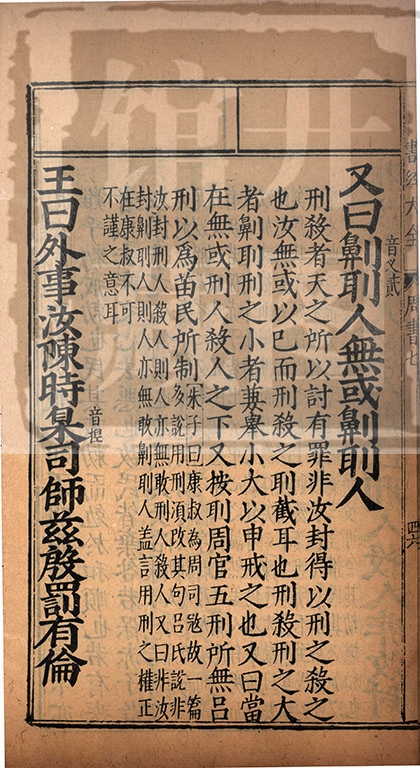 書經大全
周書七
四六
又曰劓刵人無或劓刵人
音乂貳
刑殺者天之所以討有罪非汝封得以刑之殺之
也汝無或以已而刑殺之刵截耳也刑殺刑之大
者劓刵刑之小者兼舉小大以申戒之也又曰當
在無或刑人殺人之下又按刵周官五刑所無呂
刑以爲苗民所制
朱子曰康叔為周司寇故一篇
多說用刑須改其句呂氏說非
汝封刑人殺人則人亦無敢刑人殺人又曰非汝
封劓刵人則人亦無敢劓刵人盖言用刑之權正
在康叔不可
不謹之意耳
王曰外事汝陳時臬司師兹殷罰有倫
音揑